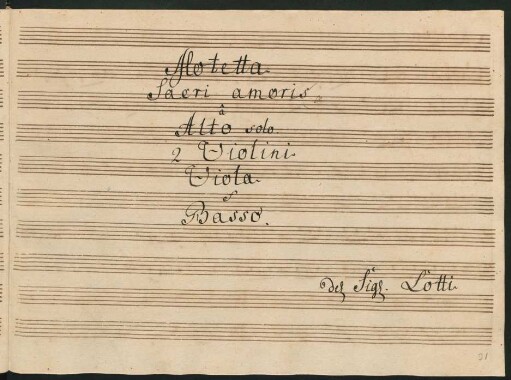 Motetta
Sacri amoris
â
Alto solo.
2 Violini.
Viola.
e
Basso.
del Sigr. Lotti.
21